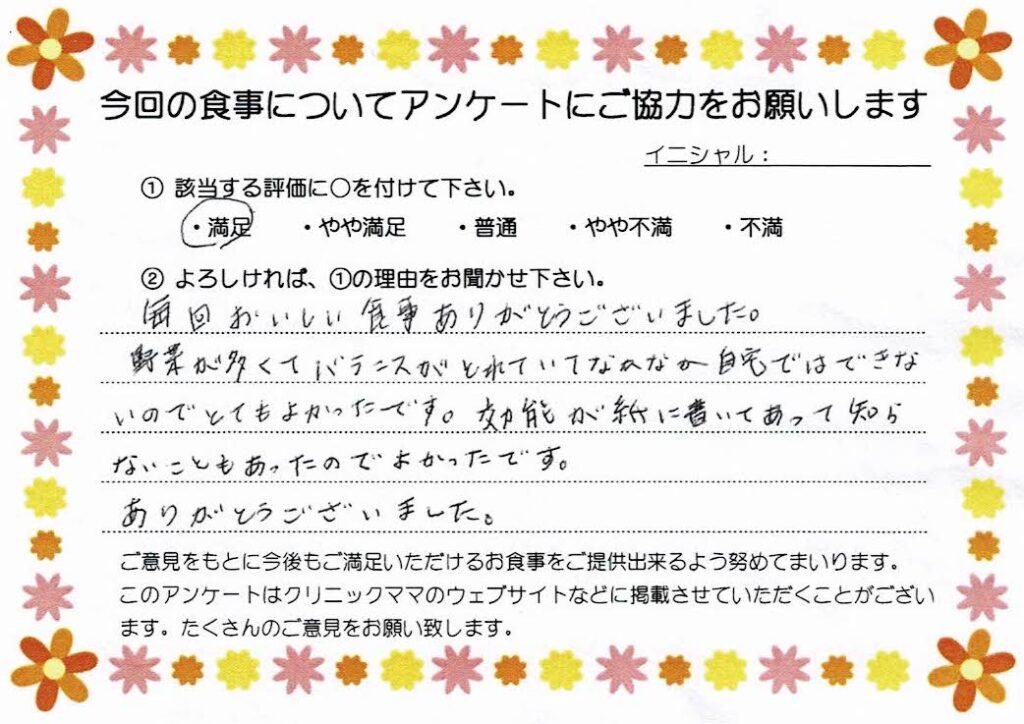 今回の食事についてアンケートにご協力をお願いします
イニシャル：
① 該当する評価に○を付けて下さい。
・満足 ・やや満足 ・普通 ・やや不満 ・不満
② よろしければ、①の理由をお聞かせ下さい。
毎回おいしい食事ありがとうございました。
野菜が多くてバランスがとれていてなかなか自宅ではできな
いのでとてもよかったです。効能が紙に書いてあって知ら
ないこともあったのでよかったです。
ありがとうございました。
ご意見をもとに今後もご満足いただけるお食事をご提供出来るよう努めてまいります。
このアンケートはクリニックママのウェブサイトなどに掲載させていただくことがござい
ます。たくさんのご意見をお願い致します。